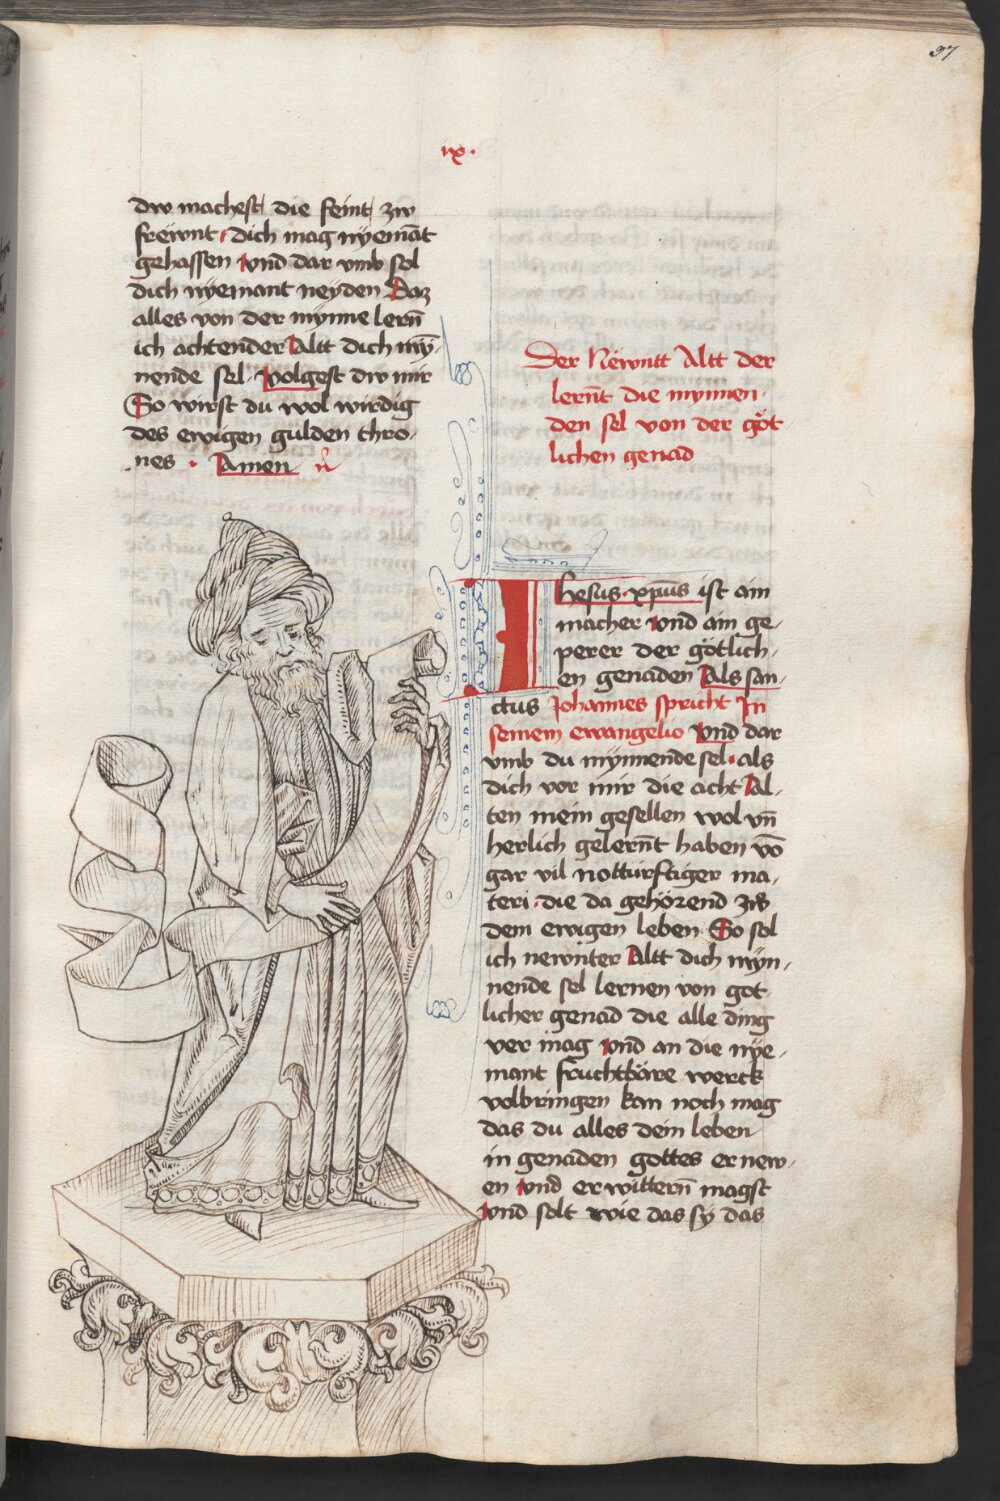 97
ix.
dw machest die feint zw
frewnt · dich mag nyemāt
gehassen vnd dar vmb sol
dich nyemant neyden Daz
alles von der mynne lern̄
ich achtender Altt dich my̅-
nende sel · volgest dw mir
So wirst du wol wirdig
des ewigen gulden thro-
nes · Amen
Der Newntt Altt der
lernt̄ die mynnen-
den sel von der göt-
lichen genad
Ihesus · xp̄us ist ain
macher vnd ain ge-
perer der götlich-
en genaden Als san-
ctus Johannes spricht In
seinem ewangelio Vnd dar
vmb du mynnende sel · als
dich vor mir die acht Al-
ten mein gesellen wol vn̄
herlich gelern̄t haben vō
gar vil notturftiger ma-
teri · die da gehörend zw
dem ewigen leben So sol
ich newnter Altt dich myn-
nende sel lernen von got-
licher genad die alle ding
ver mag vnd an die nye-
mant fruchtbäre werck
volbringen kan noch mag
das du alles dein leben
in genaden gottes ernew-
en vnd erwittern̄ magst
vnd solt wie das sy das